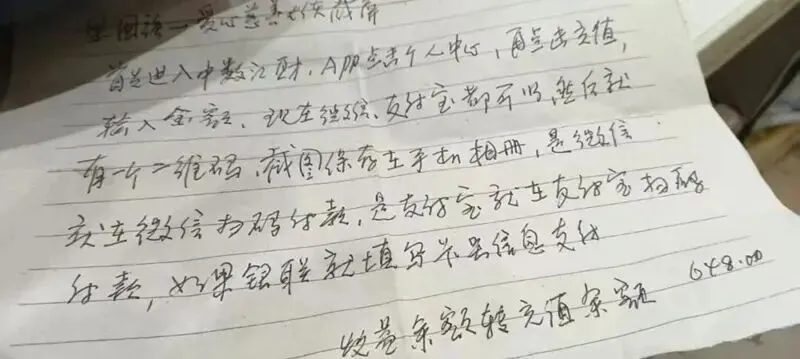 一爱心慈善大使截屏
首先进入中数汇财,APP点击个人中心,再点击充值,
输入金额,现在微信、支付宝都可以,然后就
有一个二维码,截图保存在手机相册,是微信
就在微信扫码付款,是支付宝就在支付宝扫码
付款,如果银联就填写卡号信息支付
收益余额转充值余额 648.00